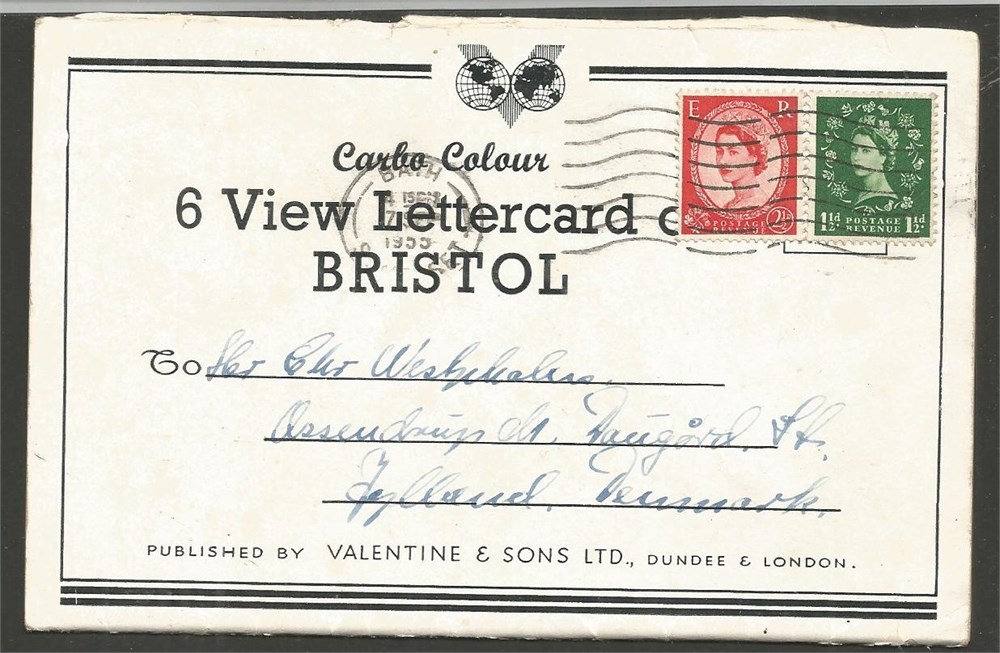 Carbo Colour
6 View Lettercard o
BRISTOL
E R
POSTAGE
REVENUE
2½d
1½d POSTAGE REVENUE 1½d
BATH
1955
SET
To Hr Chr Westphalen.
Assendrup Daugård. St.
Jylland. Denmark.
PUBLISHED BY VALENTINE & SONS LTD., DUNDEE & LONDON.